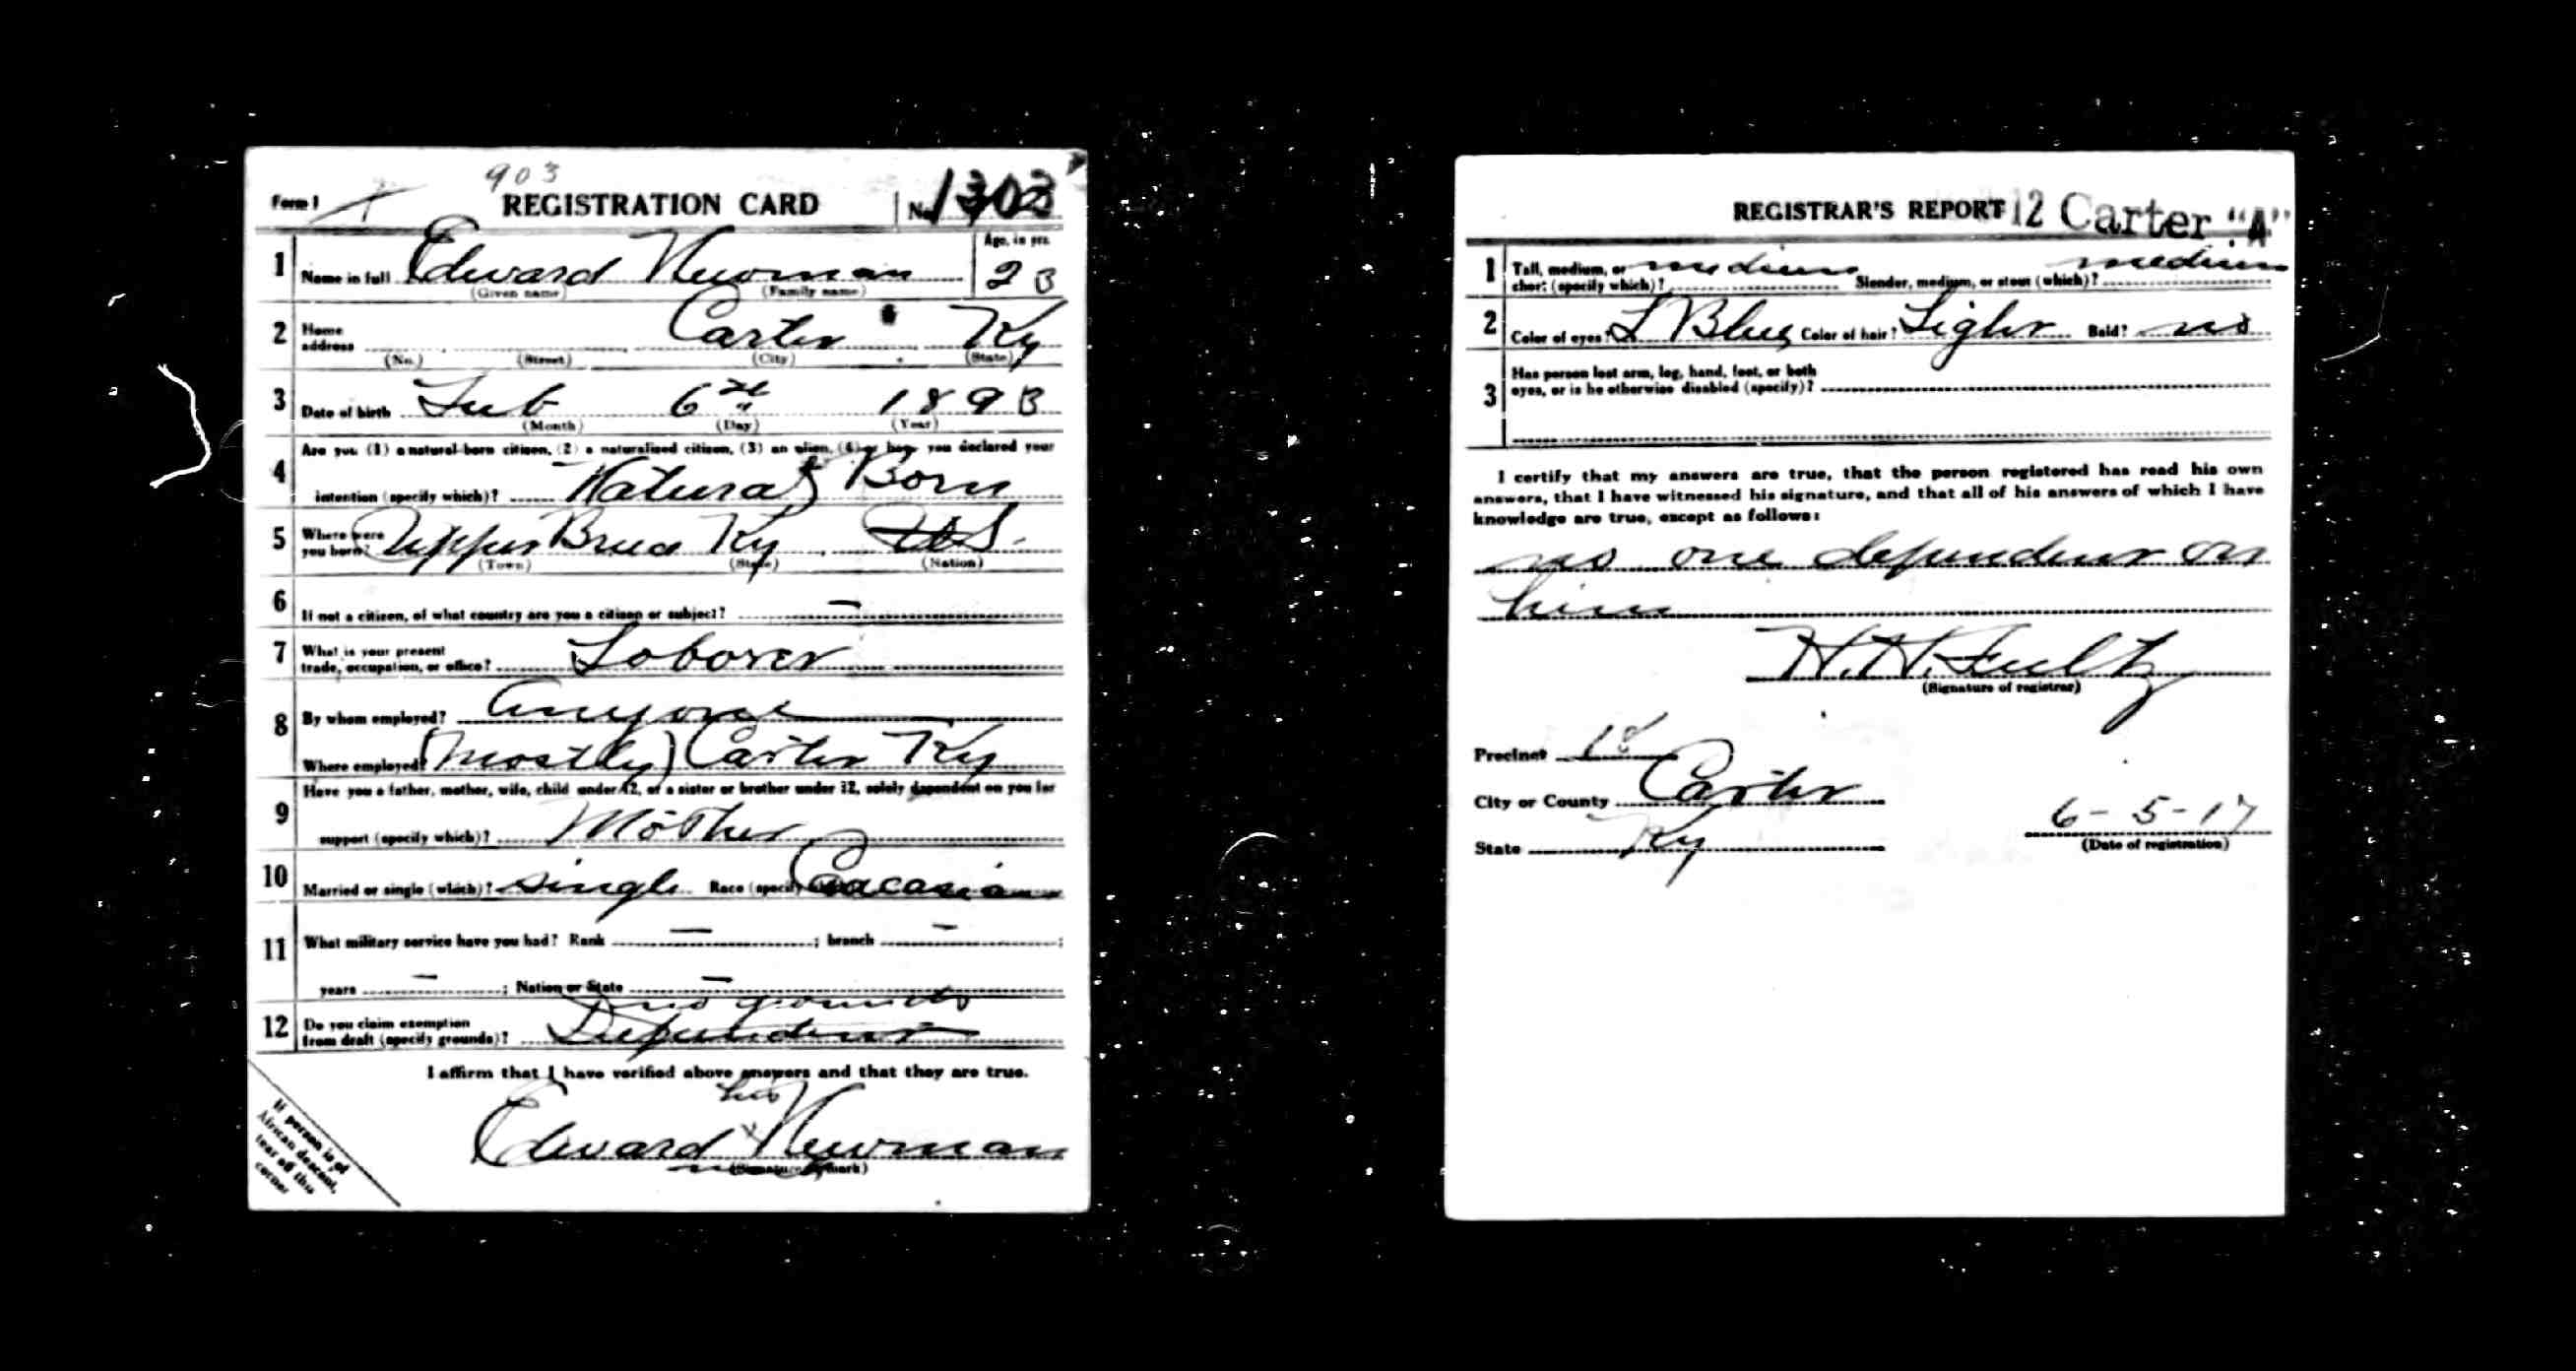 903
Form 1 REGISTRATION CARD No. 1303
1 Name in full Edward Newman Age, in yrs. 23
(Given name) (Family name)
2 Home address Carter Ky
(No.) (Street) (City) (State)
3 Date of birth Feb 6th 1893
(Month) (Day) (Year)
4 Are you (1) a natural-born citizen, (2) a naturalized citizen, (3) an alien, (4) or have you declared your
intention (specify which)? Natural Born
5 Where were you born? Upper Ky U.S.
(Town) (State) (Nation)
6 If not a citizen, of what country are you a citizen or subject? —
7 What is your present trade, occupation, or office? Laborer
8 By whom employed? Anyone
Where employed? (Mostly) Carter Ky
9 Have you a father, mother, wife, child under 12, or a sister or brother under 12, solely dependent on you for
support (specify which)? Mother
10 Married or single (which)? single Race (specify Cacasian
11 What military service have you had? Rank — ; branch — ;
years — ; Nation or State —
no grounds
12 Do you claim exemption from draft (specify grounds)? Dependent
I affirm that I have verified above answers and that they are true.
his
Edward x Newman
mark (Signature or mark)
If person is of
African descent,
tear off this
corner
REGISTRAR'S REPORT 12 Carter "A"
1 Tall, medium, or short (specify which)? medium Slender, medium, or stout (which)? medium
2 Color of eyes? L Blue Color of hair? Light Bald? no
3 Has person lost arm, leg, hand, foot, or both
eyes, or is he otherwise disabled (specify)?
I certify that my answers are true, that the person registered has read his own
answers, that I have witnessed his signature, and that all of his answers of which I have
knowledge are true, except as follows:
no one dependent on
him
H. H. Fultz
(Signature of registrar)
Precinct 18
City or County Carter
State Ky
6-5-17
(Date of registration)